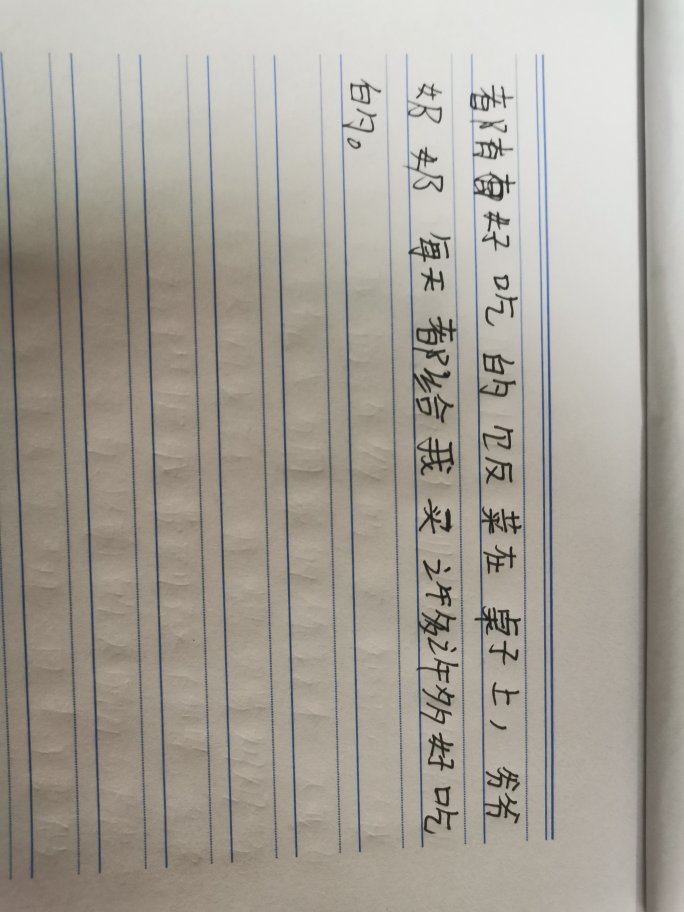 都有有好吃的饭菜在桌子上，爷爷
奶奶每天都给我买许多许多好吃
的。